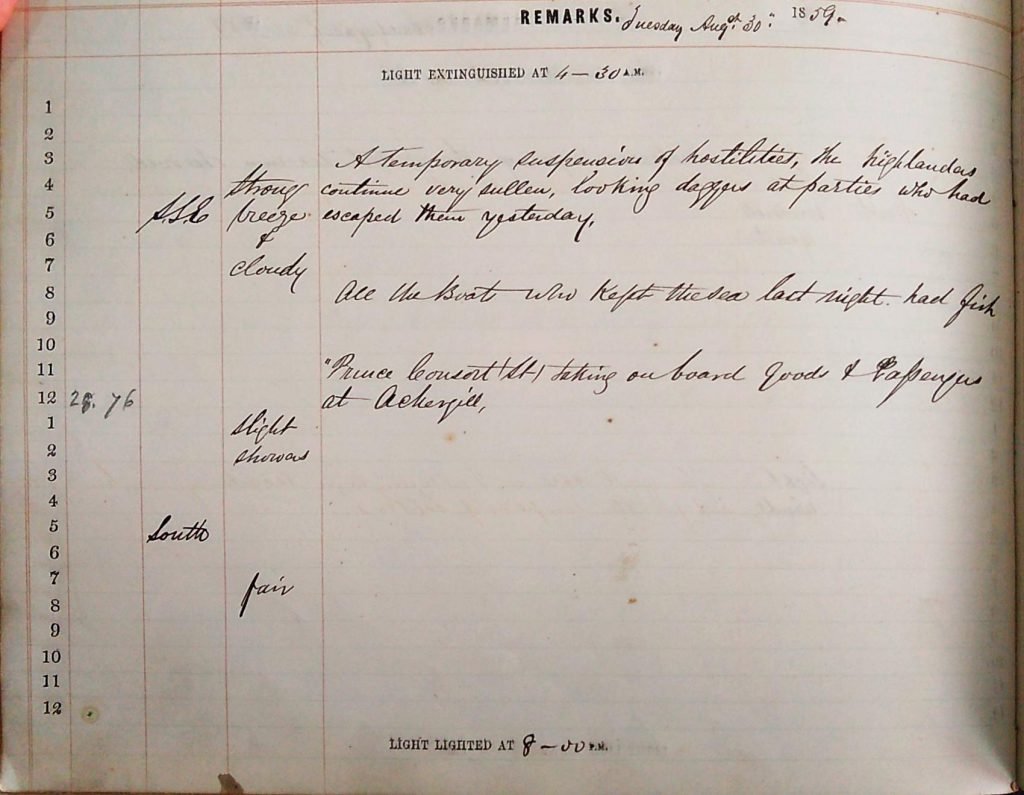 REMARKS. Tuesday Augst 30th 1859.
LIGHT EXTINGUISHED AT 4-30 A.M.
1
2
3 A temporary suspension of hostilities, the highlanders
4 strong continue very sullen, looking daggers at parties who had
5 S.S.E breeze escaped them yesterday.
6 &
7 cloudy
8 All the Boat who kept the sea last night. had fish
9
10
11 "Prince Consort" (St) taking on board goods & Passengers
12 28. 76 at Ackergill,
1 slight
2 showers
3
4
5 South
6
7 fair
8
9
10
11
12
LIGHT LIGHTED AT 8-00 P.M.